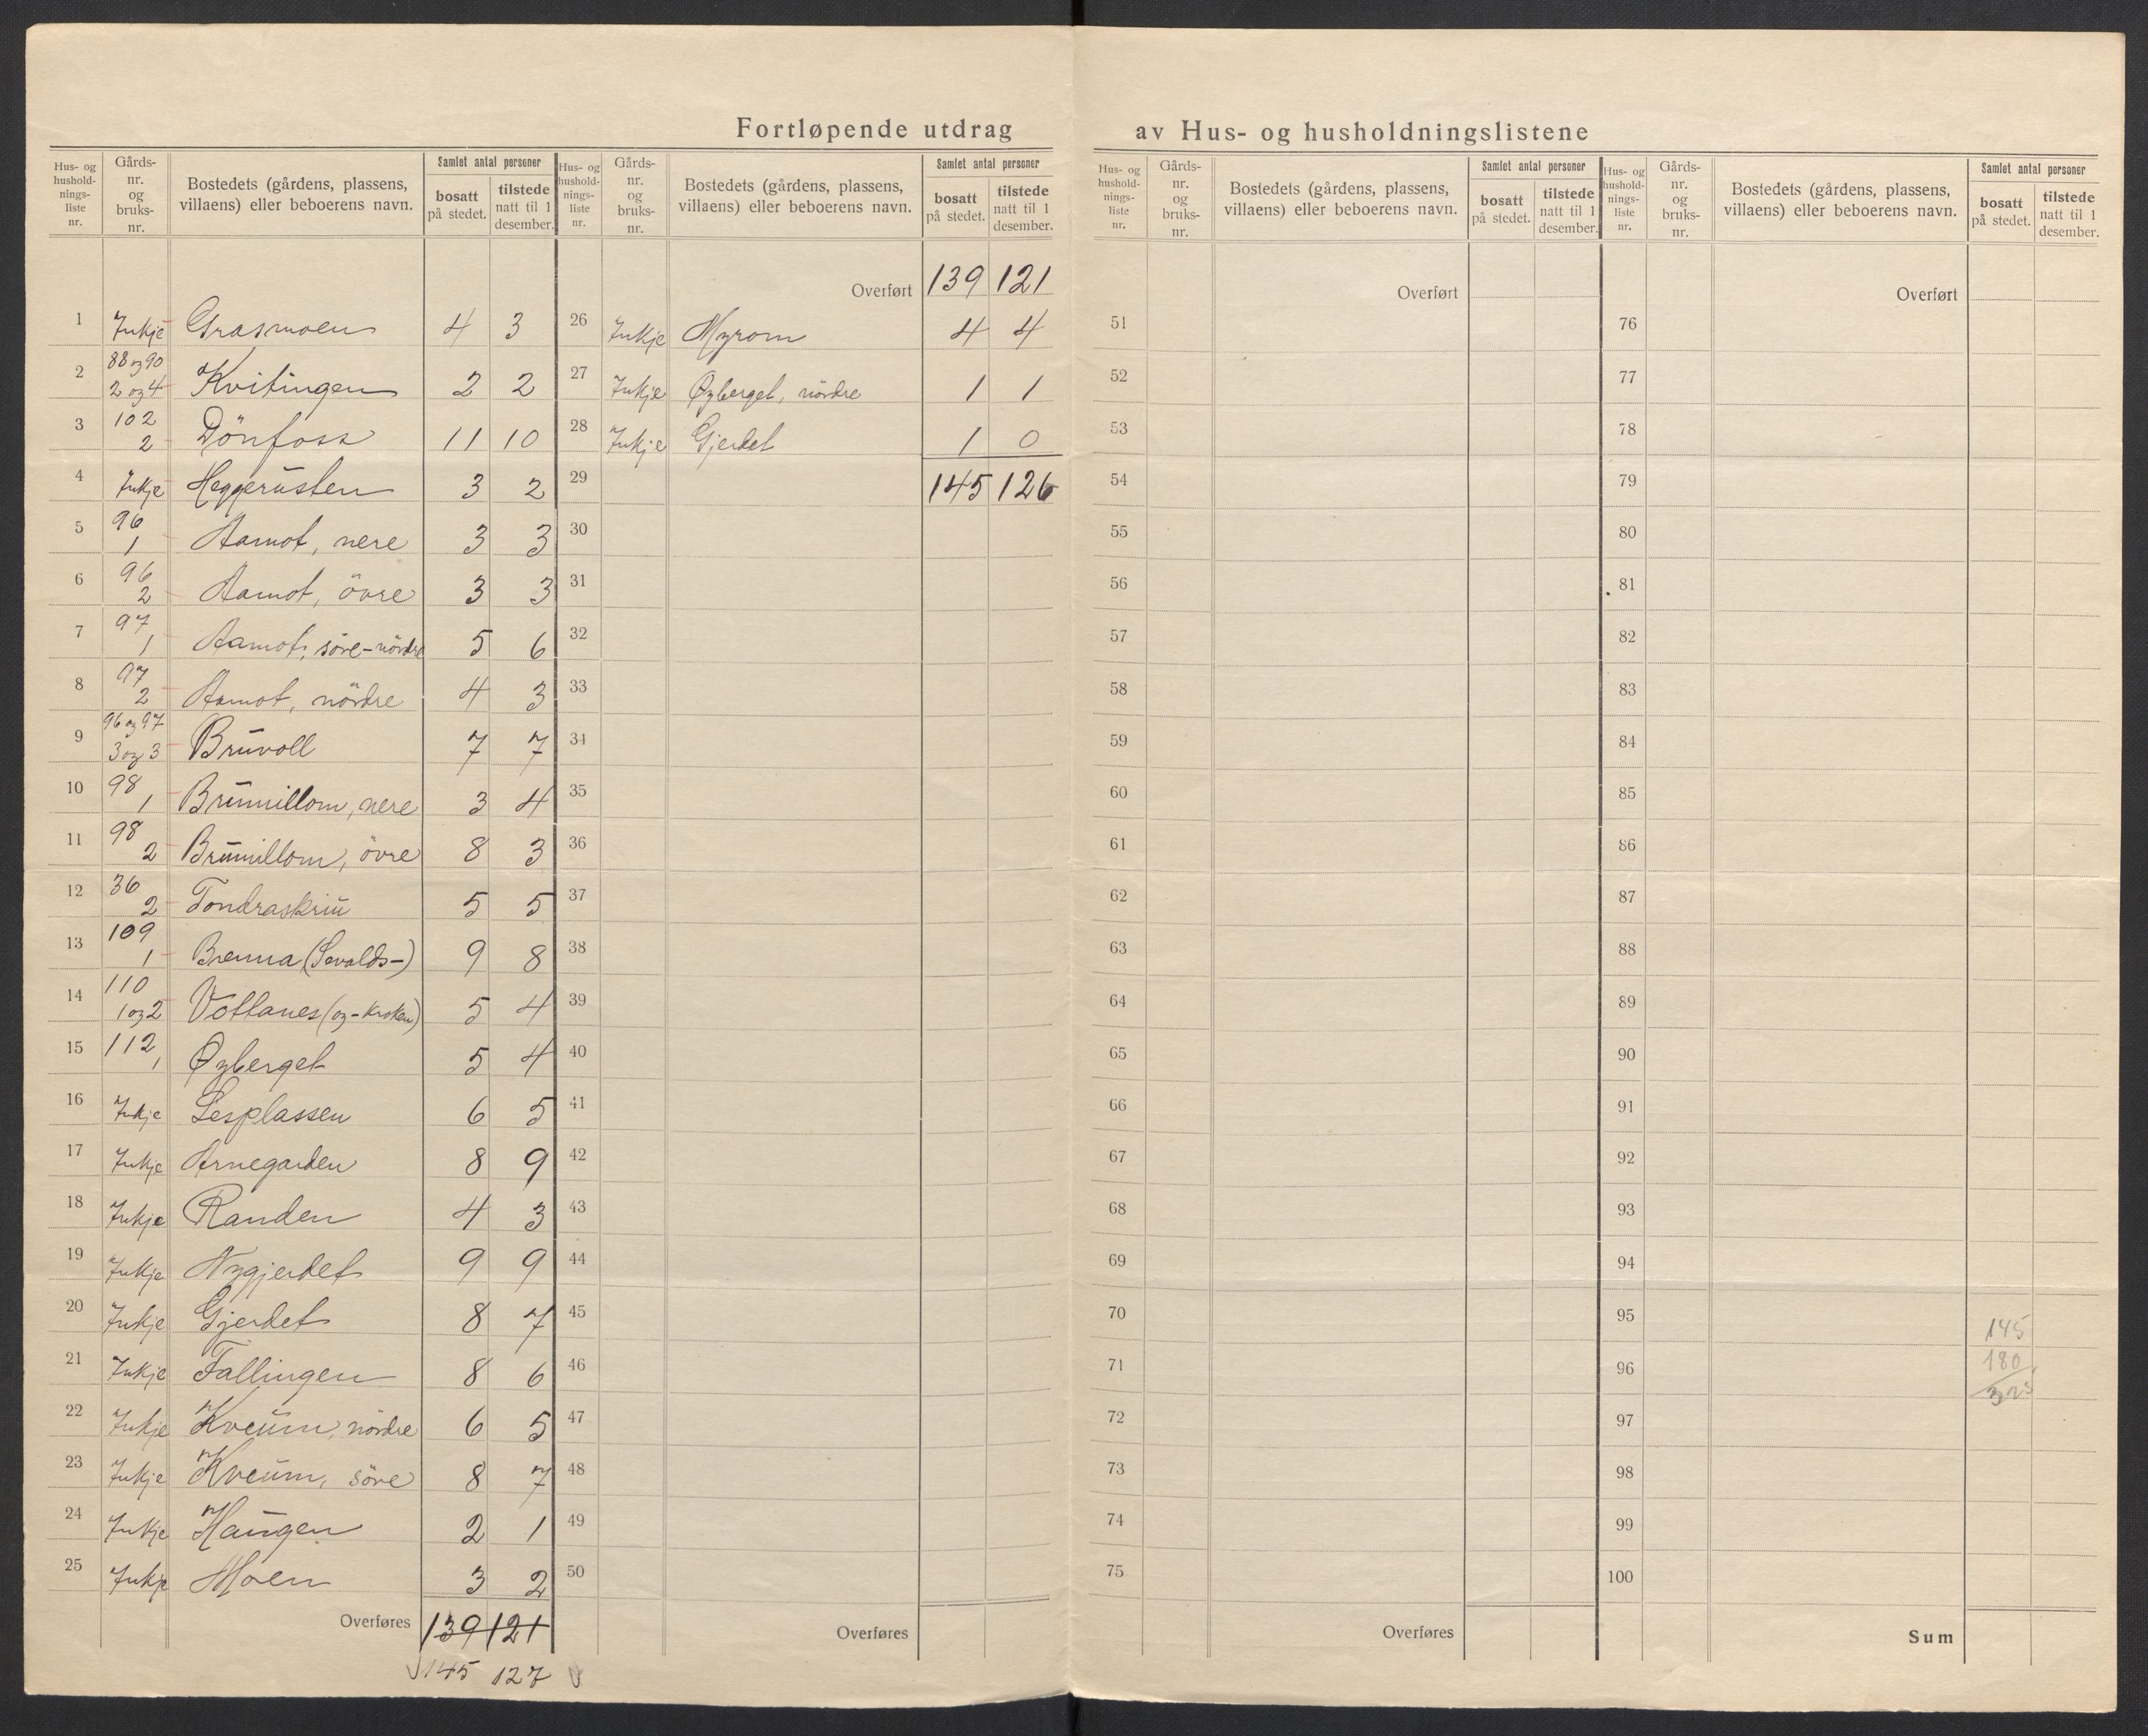 Fortløpende utdrag av Hus- og husholdningslistene
Hus- og hushold-nings-liste nr. Gårds-nr. og bruks-nr. Bostedets (gårdens, plassens, villaens) eller beboerens navn. Samlet antal personer bosatt på stedet. tilstede natt til 1 desember.
1 Inkje Grasmoen 4 3
2 88 og 90 2 og 4 Kvitingen 2 2
3 102 2 Dönfoss 11 10
4 Inkje Heggerusten 3 2
5 96 1 Aamot, nere 3 3
6 96 2 Aamot, övre 3 3
7 97 1 Aamot, söre-nördre 5 6
8 97 2 Aamot, nördre 4 3
9 96 og 97 3 og 3 Bruvoll 7 7
10 98 1 Brumillom, nere 3 4
11 98 2 Brumillom, övre 8 3
12 36 2 Tondraskriu 5 5
13 109 1 Brenna (Sevalds-) 9 8
14 110 1 og 2 Vottanes (og - kroken) 5 4
15 112 1 Øyberget 5 4
16 Inkje Lesplassen 6 5
17 Inkje Arnegarden 8 9
18 Inkje Randen 4 3
19 Inkje Nygjerdet 9 9
20 Inkje Gjerdet 8 7
21 Inkje Fallingen 8 6
22 Inkje Kveum, nördre 6 5
23 Inkje Kveum, söre 8 7
24 Inkje Haugen 2 1
25 Inkje Moen 3 2
Overføres 139 121
145 127
Hus- og hushold-nings-liste nr. Gårds-nr. og bruks-nr. Bostedets (gårdens, plassens, villaens) eller beboerens navn. Samlet antal personer bosatt på stedet. tilstede natt til 1 desember.
Overført 139 121
26 Inkje Myrom 4 4
27 Inkje Øyberget, nördre 1 1
28 Inkje Gjerdet 1 0
29 145 126
30
31
32
33
34
35
36
37
38
39
40
41
42
43
44
45
46
47
48
49
50
Overføres
Hus- og hushold-nings-liste nr. Gårds-nr. og bruks-nr. Bostedets (gårdens, plassens, villaens) eller beboerens navn. Samlet antal personer bosatt på stedet. tilstede natt til 1 desember.
Overført
51
52
53
54
55
56
57
58
59
60
61
62
63
64
65
66
67
68
69
70
71
72
73
74
75
Overføres
Hus- og hushold-nings-liste nr. Gårds-nr. og bruks-nr. Bostedets (gårdens, plassens, villaens) eller beboerens navn. Samlet antal personer bosatt på stedet. tilstede natt til 1 desember.
Overført
76
77
78
79
80
81
82
83
84
85
86
87
88
89
90
91
92
93
94
95 145
96 180
325
97
98
99
100
Sum